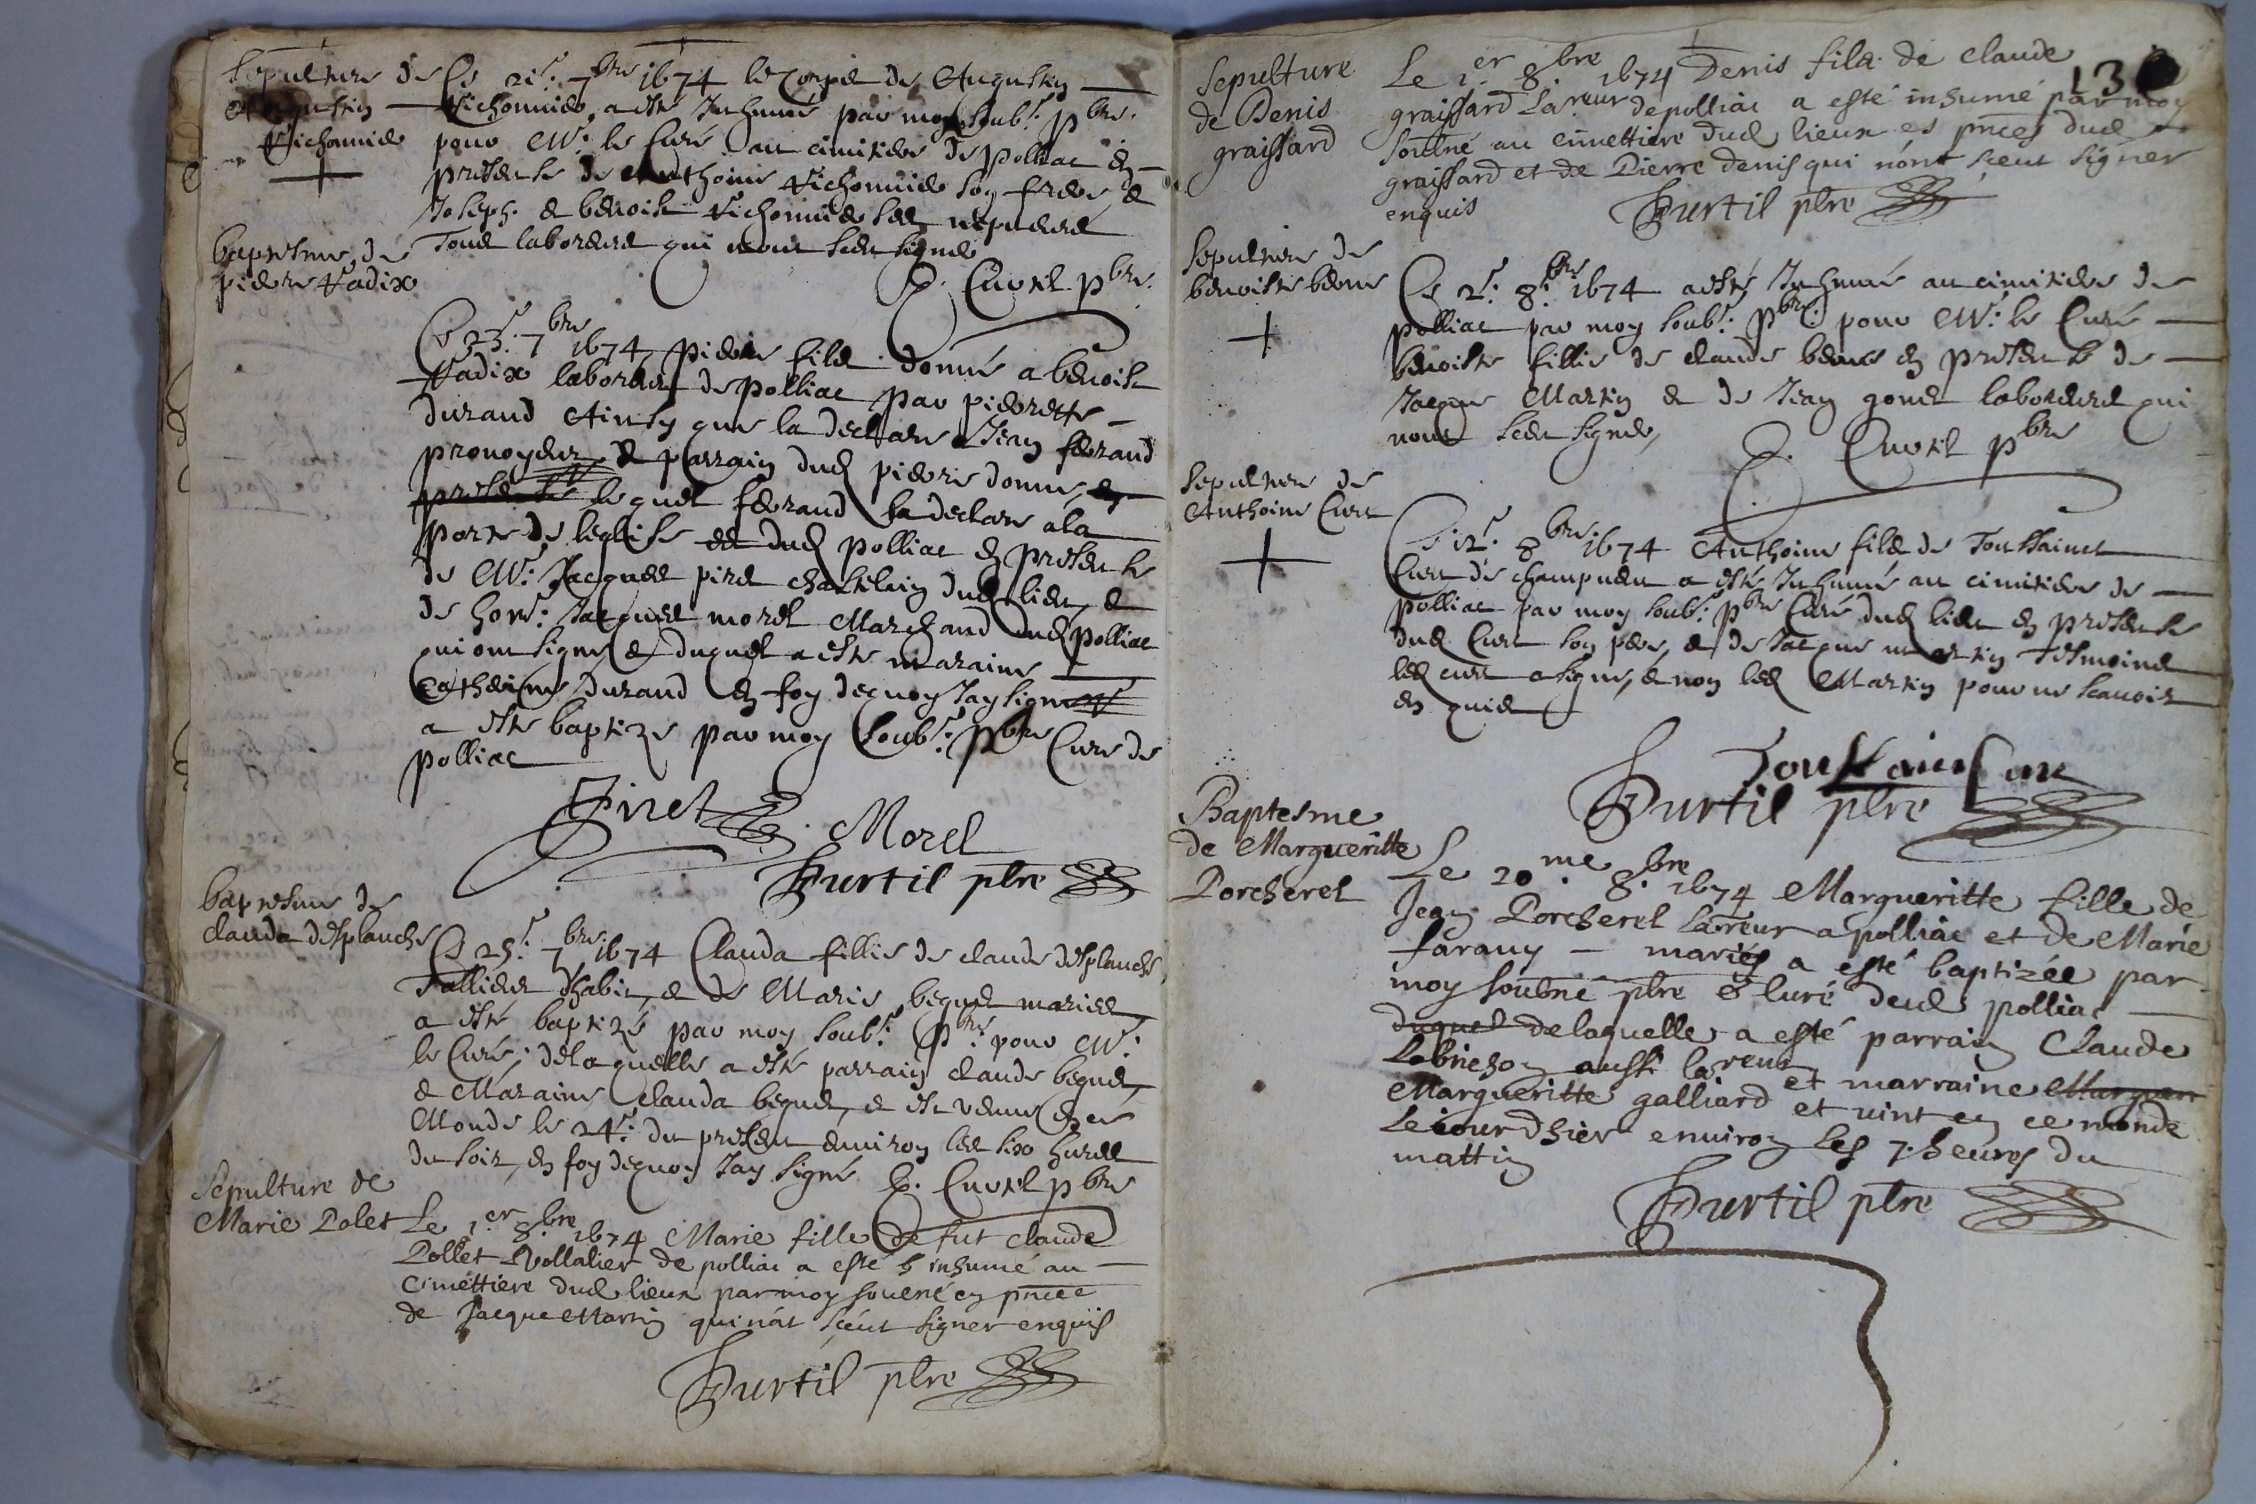 Sepulture de
Augustin
Vichomide
Ce 21e. 7bre 1674 le corps de Augustin
Vichomide, a esté Inhumé par moy soubs. pbre.
pour Mr. le Curé au cimitiere de polliac en
presente de Anthoine Vichomide son frere, &
Joseph & benoist Vichomide ses nepueurs
Tous laboreurs qui nont sceu signe
Cuvtil pbre.
baptesme de
piere Vadix
Ce 23e. 7bre 1674 piere filz donné a benoist
Vadix laboreur de polliac par pierette
durand Ainsy que la declare Jean ferand
pronoyeur & parrain dud piere donné, en
presente lequel ferand la declare a la
porte de leglise dud polliac en presente
de Mr. Jacques piret chastelain dud lieu, &
de hon. Jacques morel Marchand dud polliac
qui ont signé & duquel a esté maraine
Catherine durand en foy dequoy Jay signé
a esté baptize par moy soubs. pbre Cure de
polliac
Piret
Morel
Purtil pbre
baptesme de
clauda desplanche
Ce 25e. 7bre. 1674 Clauda fillie de claude desplanche
Tallieur dhabit, & de Marie beguet mariee,
a esté baptizé par moy soubs. pbre. pour Mr.
le Curé; de laquelle a esté parrain claude beguet,
& Maraine clauda beguet, & est venue en ce
Monde le 24e. du present environ les six hures
du soir, en foy dequoy Jay signé
Cuvtil pbre
Sepulture de
Marie Polet
Le 1er 8bre 1674 Marie fille de fut claude
Pollet Vollalier de polliac a esté inhumé au
Cimettiere dud lieux par moy soubné en pnce
de Jacque Martin qui nat sceut signer enquis
Purtil pbre
130
Sepulture
de Denis
graissard
Le 1er 8bre 1674 Denis filz de claude
graissard Lareur de polliac a esté inhumé par moy
soubné au cimettiere dud lieux es pnces dud
graissard et de Pierre denis qui n'ont sceut signer
enquis
Purtil pbre
Sepulture de
benoiste berne
Ce 2e. 8bre 1674 a esté Inhumé au cimitiere de
polliac par moy soubs. pbre. pour Mr. le Curé
benoiste fillie de claude berne en presente de
Jacque Martin & de Jean gonet laboreurs qui
nont sceu signer,
Cuvtil pbre
Sepulture de
Anthoine Curt
Ce 12e. 8bre. 1674 Anthoine filz de Toussainct
Curt de champueu a esté Inhumé au cimitiere de
polliac par moy soubs. pbre Curé dud lieu en presente
dud Curt son pere, & de Jacque martin Tesmoins
led curt a signé, & non led Martin pour ne scauoir
en quis
Toussainct curt
Purtil pbre
Baptesme
de Margueritte
Porcherel
Le 20me. 8bre 1674 Margueritte fille de
Jean Porcherel Lareur a polliac et de Marie
farauy mariés a esté baptizée par
moy soubné pbre & Curé dud polliac
duquel delaquelle a esté parrain Claude
Lebrichon aussi lareur et marraine Marguer
Margueritte galliard et vint en ce monde
Le iour d'hier enuiron les 7. heures du
mattin
Purtil pbre